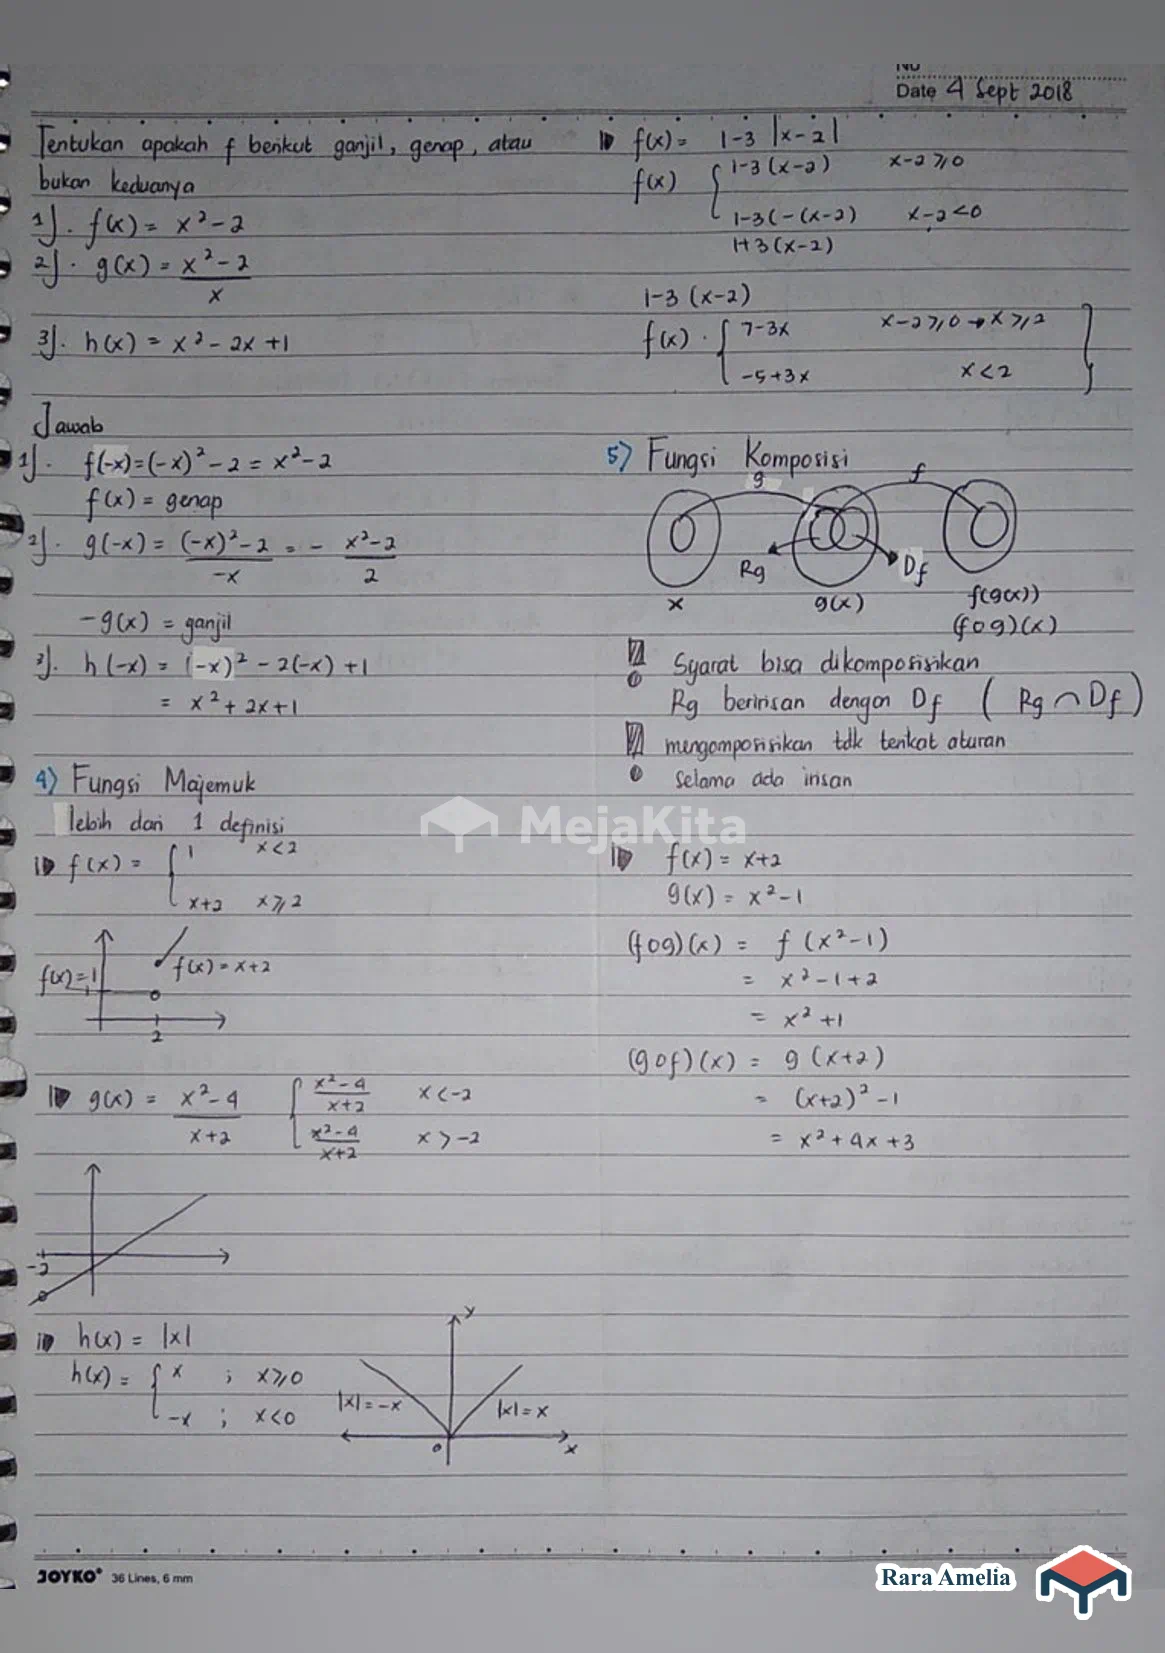 No
Date 4 Sept 2018
Tentukan apakah f berikut ganjil, genap, atau
bukan keduanya
1]. f(x) = x² - 2
2]. g(x) = x² - 2
x
3]. h(x) = x² - 2x + 1
Jawab
1]. f(-x) = (-x)² - 2 = x² - 2
f(x) = genap
2]. g(-x) = (-x)² - 2 = - x² - 2
-x 2
-g(x) = ganjil
3]. h(-x) = (-x)² - 2(-x) + 1
= x² + 2x + 1
4) Fungsi Majemuk
lebih dari 1 definisi
f(x) = { 1 x < 2
x+2 x ≥ 2
f(x) = x+2
f(x) = 1
2
g(x) = x² - 4 { x² - 4 x < -2
x+2 x+2
x² - 4 x > -2
x+2
-2
h(x) = |x|
h(x) = { x ; x ≥ 0
-x ; x < 0
y
|x| = -x |x| = x
0 x
f(x) = 1-3 |x-2|
f(x) { 1-3(x-2) x-2 ≥ 0
1-3(-(x-2) x-2 < 0
1+3(x-2)
1-3 (x-2)
f(x) . { 7-3x x-2 ≥ 0 → x ≥ 2
-5+3x x < 2 }
5) Fungsi Komposisi
g f
Rg Df
x g(x) f(g(x))
(fog)(x)
Syarat bisa dikomposisikan
Rg beririsan dengan Df ( Rg ∩ Df )
mengomposisikan tdk terikat aturan
selama ada irisan
f(x) = x+2
g(x) = x² - 1
(fog)(x) = f (x² - 1)
= x² - 1 + 2
= x² + 1
(gof)(x) = g (x+2)
= (x+2)² - 1
= x² + 4x + 3
MejaKita
JOYKO® 36 Lines, 6 mm
Rara Amelia